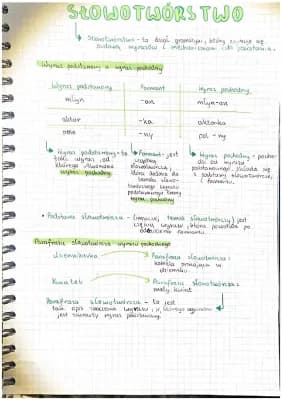 SŁOWOTWÓRSTWO
Słowotwórstwo - to dział gramatyki, który zajmuje się
budową wyrazów i mechanizmami ich powstania.
Wyraz podstawowy a wyraz pochodny
Wyraz podstawowy Formant Wyraz pochodny
młyn -arz
aktor -ka aktorka
-ny
Wyraz podstawowy - to
taki wyraz, od
którego utworzono
wyraz pochodny
Formant - jest
cząstką
słowotwórczą,
która dodana do
tematu słowo-
twórczego wyrazu
podstawowego tworzy
wyraz pochodny
Wyraz pochodny - pocho-
dzi od wyrazu
podstawowego. Składa się
z podstawy słowotwórczej
i formantu.
• Podstawa słowotwórcza - (inaczej temat słowotwórczy) jest
częścią wyrazu, która powstała po
oddzieleniu formantu.
Parafraza słowotwórcza wyrazu pochodnego
Parafraza słowotwórcza:
kobieta
Kwiatek
Parafraza słowotwórcza:
mały kwiat
Parafraza słowotwórcza - to jest
taki opis znaczenia wyrazu, w którego
jest zawarty wyraz podstawowy.